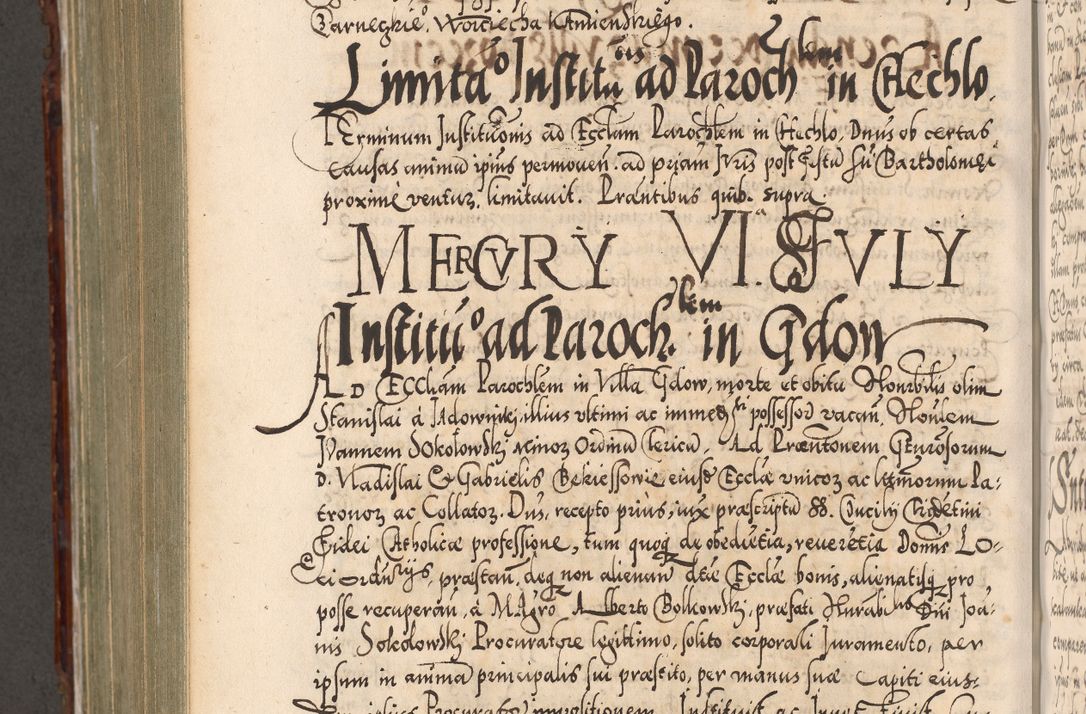 Zarneckie͠o. Woiciecha Kamienskiego.
Limita͠o Institu͠ois ad Paroch͠lem in Chechlo.
TErminum Institu͠onis ad Eccl͠am Paroch͠lem in Chechlo, Dn͠us ob certas
causas animu͠ ip͠ius permoven͠. ad p͠riam Juris post Festu͠ S͠ti Bartholomei
proxime ventur͠. limitavit. Pr͠antibus quib. supra
MERCVRY VI.a IVLY
Institu͠o ad Paroch͠lem in Gdow
AD Eccl͠am Paroch͠lem in Villa Gdow, morte et obitu Hon͠rbilis olim
Stanislai à Jadowniki, illius ultimi ac immed͠ti possessor͠ vacan͠. Hon͠lem
Joannem Sokolowski minor͠ Ordinu͠ clericu͠. Ad Pr͠æntonem G͠enerosorum
D. Vladislai & Gabrielis Bekiessowie eiusd͠ Eccl͠æ unicor͠ ac l͠egitimorum Pa-
tronor͠ ac Collator͠. Dn͠us, recepto prius, iux͠ præscriptu͠ SS. Concilij Tridentini
Fidei Catholicæ professione, tum quoq͠ de obedie͠tia, revere͠tia Domi͠s Lo-
ci Ordin͠rijs, præstan͠. deq͠ non alienan͠ d͠ictæ Eccl͠æ bonis, alienatisq͠ pro
posse recuperan͠. à M͠agro Alberto Bolkowski, præfati Hon͠rabilis D͠ni Joa͠-
nis Sokolowski Procuratore legittimo, solito corporali Juramento, per
ipsum in anima͠ principalis sui præstito, per manus suæ Capiti eius-